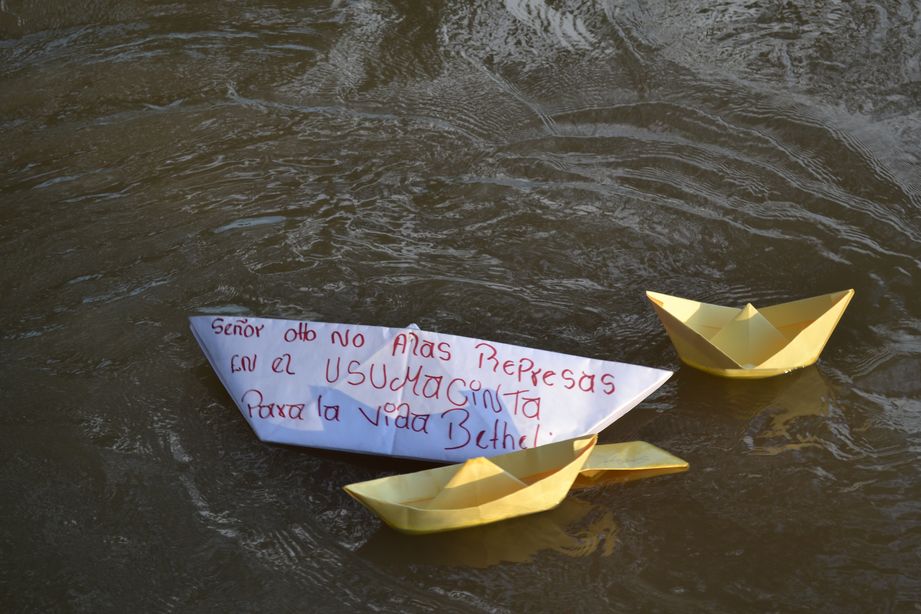 Señor otto No Alas Represas
EN el USUMACINTA
Para la vida Bethel.